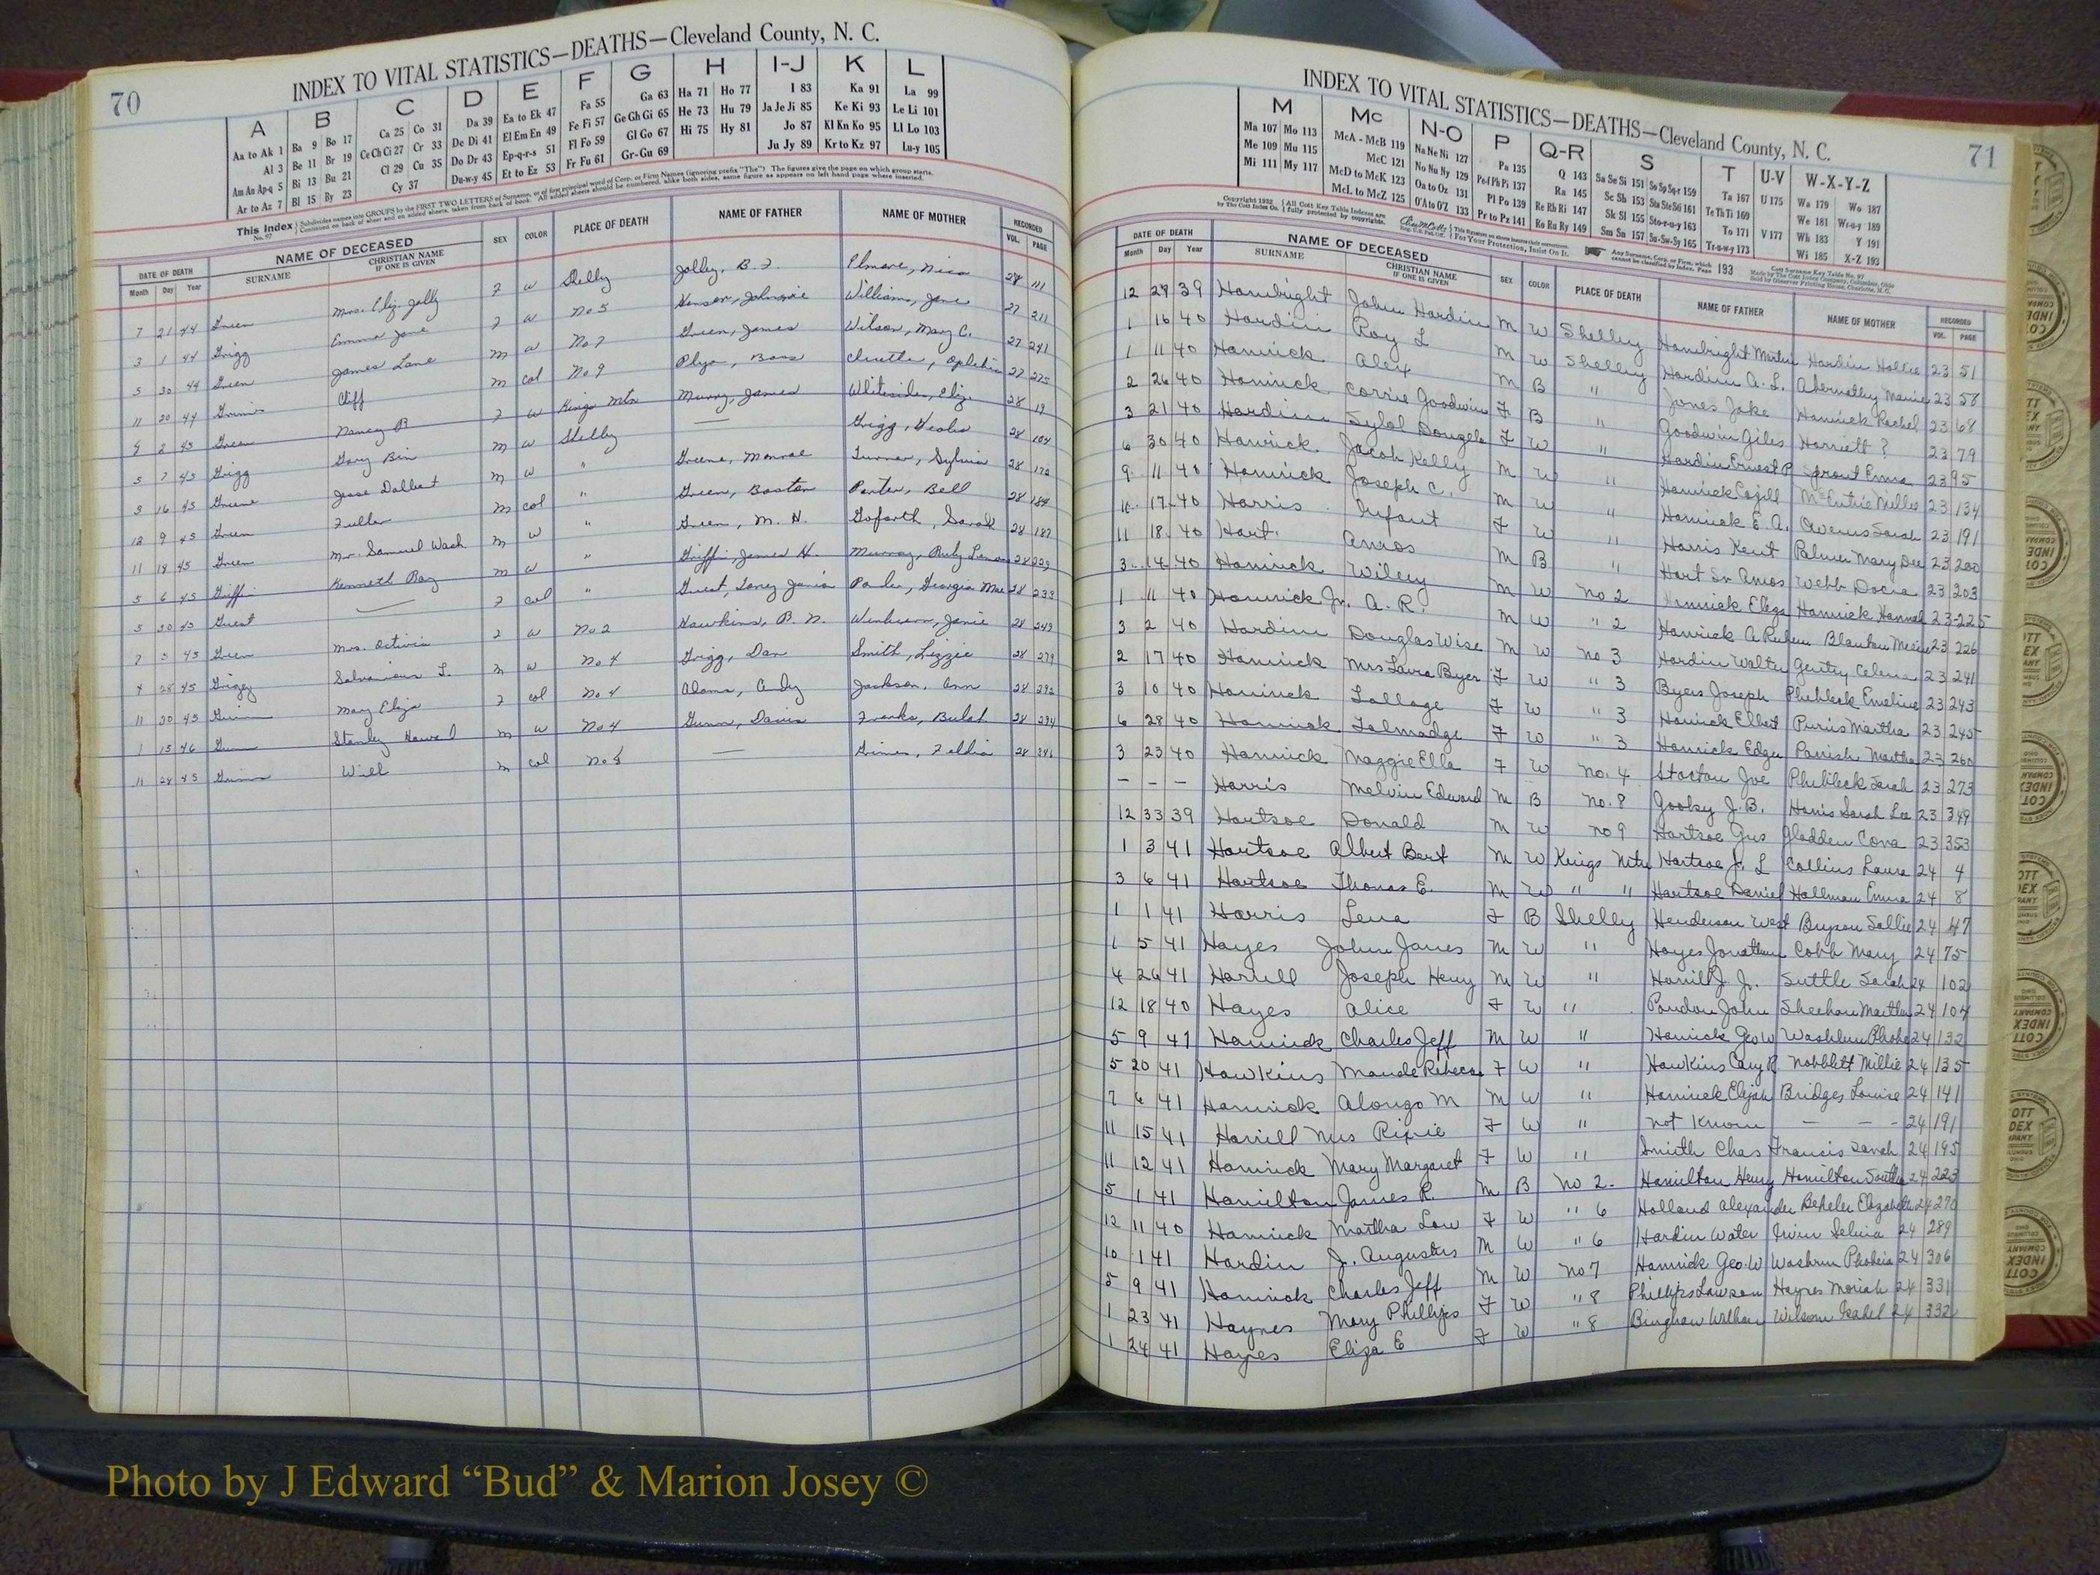 70
INDEX TO VITAL STATISTICS—DEATHS—Cleveland County, N. C.
A B C D E F G H I-J K L
Aa to Ak 1 Ba 9 Bo 17 Ca 25 Co 31 Da 39 Ea to Ek 47 Fa 55 Ga 63 Ha 71 Ho 77 I 83 Ka 91 La 99
Al 3 Be 11 Br 19 Ce Ch Ci 27 Cr 33 De Di 41 El Em En 49 Fe Fi 57 Ge Gh Gi 65 He 73 Hu 79 Ja Je Ji 85 Ke Ki 93 Le Li 101
Am An Ap-q 5 Bi 13 Bu 21 Cl 29 Cu 35 Do Dr 43 Ep-q-r-s 51 Fl Fo 59 Gl Go 67 Hi 75 Hy 81 Jo 87 Kl Kn Ko 95 Ll Lo 103
Ar to Az 7 Bl 15 By 23 Cy 37 Du-w-y 45 Et to Ez 53 Fr Fu 61 Gr-Gu 69 Ju Jy 89 Kr to Kz 97 Lu-y 105
This Index No. 97 Subdivides names into GROUPS by the FIRST TWO LETTERS of Surname, or of first principal word of Corp. or Firm Names (ignoring prefix "The") The figures give the page on which group starts.
Continued on back of sheet and on added sheets, taken from back of book. "All added sheets should be numbered, alike both sides, same figure as appears on left hand page where inserted.
DATE OF DEATH NAME OF DECEASED SEX COLOR PLACE OF DEATH NAME OF FATHER NAME OF MOTHER RECORDED
Month Day Year SURNAME CHRISTIAN NAME IF ONE IS GIVEN VOL. PAGE
7 21 44 Green Mrs. Eliz. Jolly F W Shelby Jolley, B. F. Elmore, 28 111
3 1 44 Grigg Emma Jane F W No 5 Williams, Jane 27 211
5 30 44 Green James Lane M W No 7 Green, James Wilson, Mary C. 27 241
11 20 44 Grimes Cliff M col No 9 27 275
2 45 Green Nancy B F W Kings Mtn Murry, James Whitesides, Eliz. 28 19
3 7 45 Grigg Gary Bin M W Shelby — Grigg, 28 104
3 16 45 Greene Jesse Dalbert M W " Greene, Monroe Turner, Sylvia 28 172
12 9 45 Green Fuller M col " Green, Boston Porter, Bell 28 184
11 18 45 Green Mr. Samuel Wach M W " Green, M. H. Goforth, Sarah 28 187
5 6 45 Griffin Kenneth Ray M W " Griffin, James H. Murray, Ruby 28
5 20 45 Guest — F col " Guest, Georgia Mae 28 233
7 3 45 Green Mrs. Octivia F W No 2 Hawkins, P. N. Janie 28 249
4 28 45 Grigg L. M W No 4 Grigg, Dan Smith, Lizzie 28 279
11 20 45 Mary Eliza F col No 4 Adams, Andy Jackson, Ann 28 292
1 15 46 Gunn Stanley Howard M W No 4 Gunn, Davis Franks, Beulah 28 294
11 28 45 Grimes Will M col No 8 — Grimes, 28
71
INDEX TO VITAL STATISTICS—DEATHS—Cleveland County, N. C.
M Mc N-O P Q-R S T U-V W-X-Y-Z
Ma 107 Mo 113 McA - McB 119 Na Ne Ni 127 Pa 135 Q 143 Sa Se Si 151 So Sp Sq-r 159 Ta 167 U 175 Wa 179 Wo 187
Me 109 Mu 115 McC 121 No Nu Ny 129 Pe-f Ph Pi 137 Ra 145 Sc Sh 153 Sta Ste Sti 161 Te Th Ti 169 We 181 Wr-u-y 189
Mi 111 My 117 McD to McK 123 Oa to Oz 131 Pl Po 139 Re Rh Ri 147 Sk Sl 155 Sto-r-u-y 163 To 171 V 177 Wh 183 Y 191
McL to McZ 125 O'A to O'Z 133 Pr to Pz 141 Ro Ru Ry 149 Sm Sn 157 Su-Sw-Sy 165 Tr-u-w-y 173 Wi 185 X-Z 193
Copyright 1932 by The Cott Index Co. All Cott Key Table Indexes are fully protected by copyrights.
For Your Protection, Insist On It. Any Surname, Corp. or Firm, which cannot be classified by Index, Page 193
Cott Surname Key Table No. 97 Made by The Cott Index Company, Columbus, Ohio Sold by Observer Printing House, Charlotte, N. C.
DATE OF DEATH NAME OF DECEASED SEX COLOR PLACE OF DEATH NAME OF FATHER NAME OF MOTHER RECORDED
Month Day Year SURNAME CHRISTIAN NAME IF ONE IS GIVEN VOL. PAGE
12 29 39 Hambright John Hardin M W Shelby Hambright Martin Hardin Hollie 23 51
1 16 40 Hardin Roy L M W Shelby Hardin A. L. Abernathy Mamie 23 58
1 11 40 Hamrick Alex M B " Jones Jake Hamrick Rachel 23 68
2 26 40 Hamrick Corrie Goodwin F B " Goodwin Giles Harriett ? 23 79
3 21 40 Hardin Sybol Dougela F W " Hardin Ernest P Sprout Emma 23 95
6 30 40 Hamrick Jacob Kelly M W " Hamrick Cajill McEntire Millie 23 134
9 11 40 Hamrick Joseph C. M W " Hamrick E. A. Owens Sarah 23 191
10 17 40 Harris Infant F W " Harris Kent Palmer Mary Dee 23 200
11 18 40 Hart Amos M B " Hart Sr Amos Webb Docia 23 203
3 14 40 Hamrick Wiley M W No 2 Hamrick Elega Hamrick Hannah 23 225
1 11 40 Hamrick Jr. A. R. M W " 2 Hamrick A Ruben Blanton 23 226
3 2 40 Hardin Douglas Wise M W No 3 Hardin Walter Gentry Celena 23 241
2 17 40 Hamrick Mrs Laura Byers F W " 3 Byers Joseph Philbeck Emeline 23 243
3 10 40 Hamrick Lallage F W " 3 Hamrick Elbert Purvis Martha 23 245
6 28 40 Hamrick Talmadge F W " 3 Hamrick Edgar Parrish Martha 23 260
3 23 40 Hamrick Maggie Ella F W No. 4 Stockton Joe Philbeck Sarah 23 273
— — — Harris Melvin Edward M B No. 8 Gooley J. B. Harris Sarah Lee 23 349
12 33 39 Hartsoe Donald M W No 9 Hartsoe Gus Gladden Cora 23 353
1 3 41 Hartsoe Albert Bert M W Kings Mtn Hartsoe J. L Collins Laura 24 4
3 6 41 Hartsoe Thomas E. M W " " Hartsoe Daniel Hallman Emma 24 8
1 1 41 Harris Lena F B Shelby Henderson West Bryson Sallie 24 47
1 5 41 Hayes John James M W " Hayes Jonathan Cobb Mary 24 75
4 26 41 Harrill Joseph Henry M W " Harrill J. Jr. Suttle Sarah 24 102
12 18 40 Hayes Alice F W " Pardon John Sheehan Martha 24 104
5 9 41 Hamrick Charles Jeff M W " Hamrick Geo W Washburn Phoebe 24 132
5 20 41 Hawkins Maude Rebecca F W " Hawkins Cary R Nobblitt Millie 24 135
7 6 41 Hamrick Alonzo M M W " Hamrick Elijah Bridges Louise 24 141
11 15 41 Harrill Mrs Rixie F W " Not Known — — - 24 191
11 12 41 Hamrick Mary Margaret F W " Smith Chas Francis Sarah 24 195
5 1 41 Hamilton James R. M B No 2 Hamilton Henry Hamilton 24 223
12 11 40 Hamrick Martha Lou F W " 6 Holland Alexander Beheler Elizabeth 24 270
10 1 41 Hardin J. Augustus M W " 6 Hardin Water Irvin Selina 24 289
5 9 41 Hamrick Charles Jeff M W No 7 Hamrick Geo. W Washburn Phoebia 24 306
1 23 41 Haynes Mary Phillips F W " 8 Phillips Lawson Haynes Moriah 24 331
1 24 41 Hayes Eliza E F W " 8 Bingham William Wilson Isabel 24 332
Photo by J Edward “Bud” & Marion Josey ©